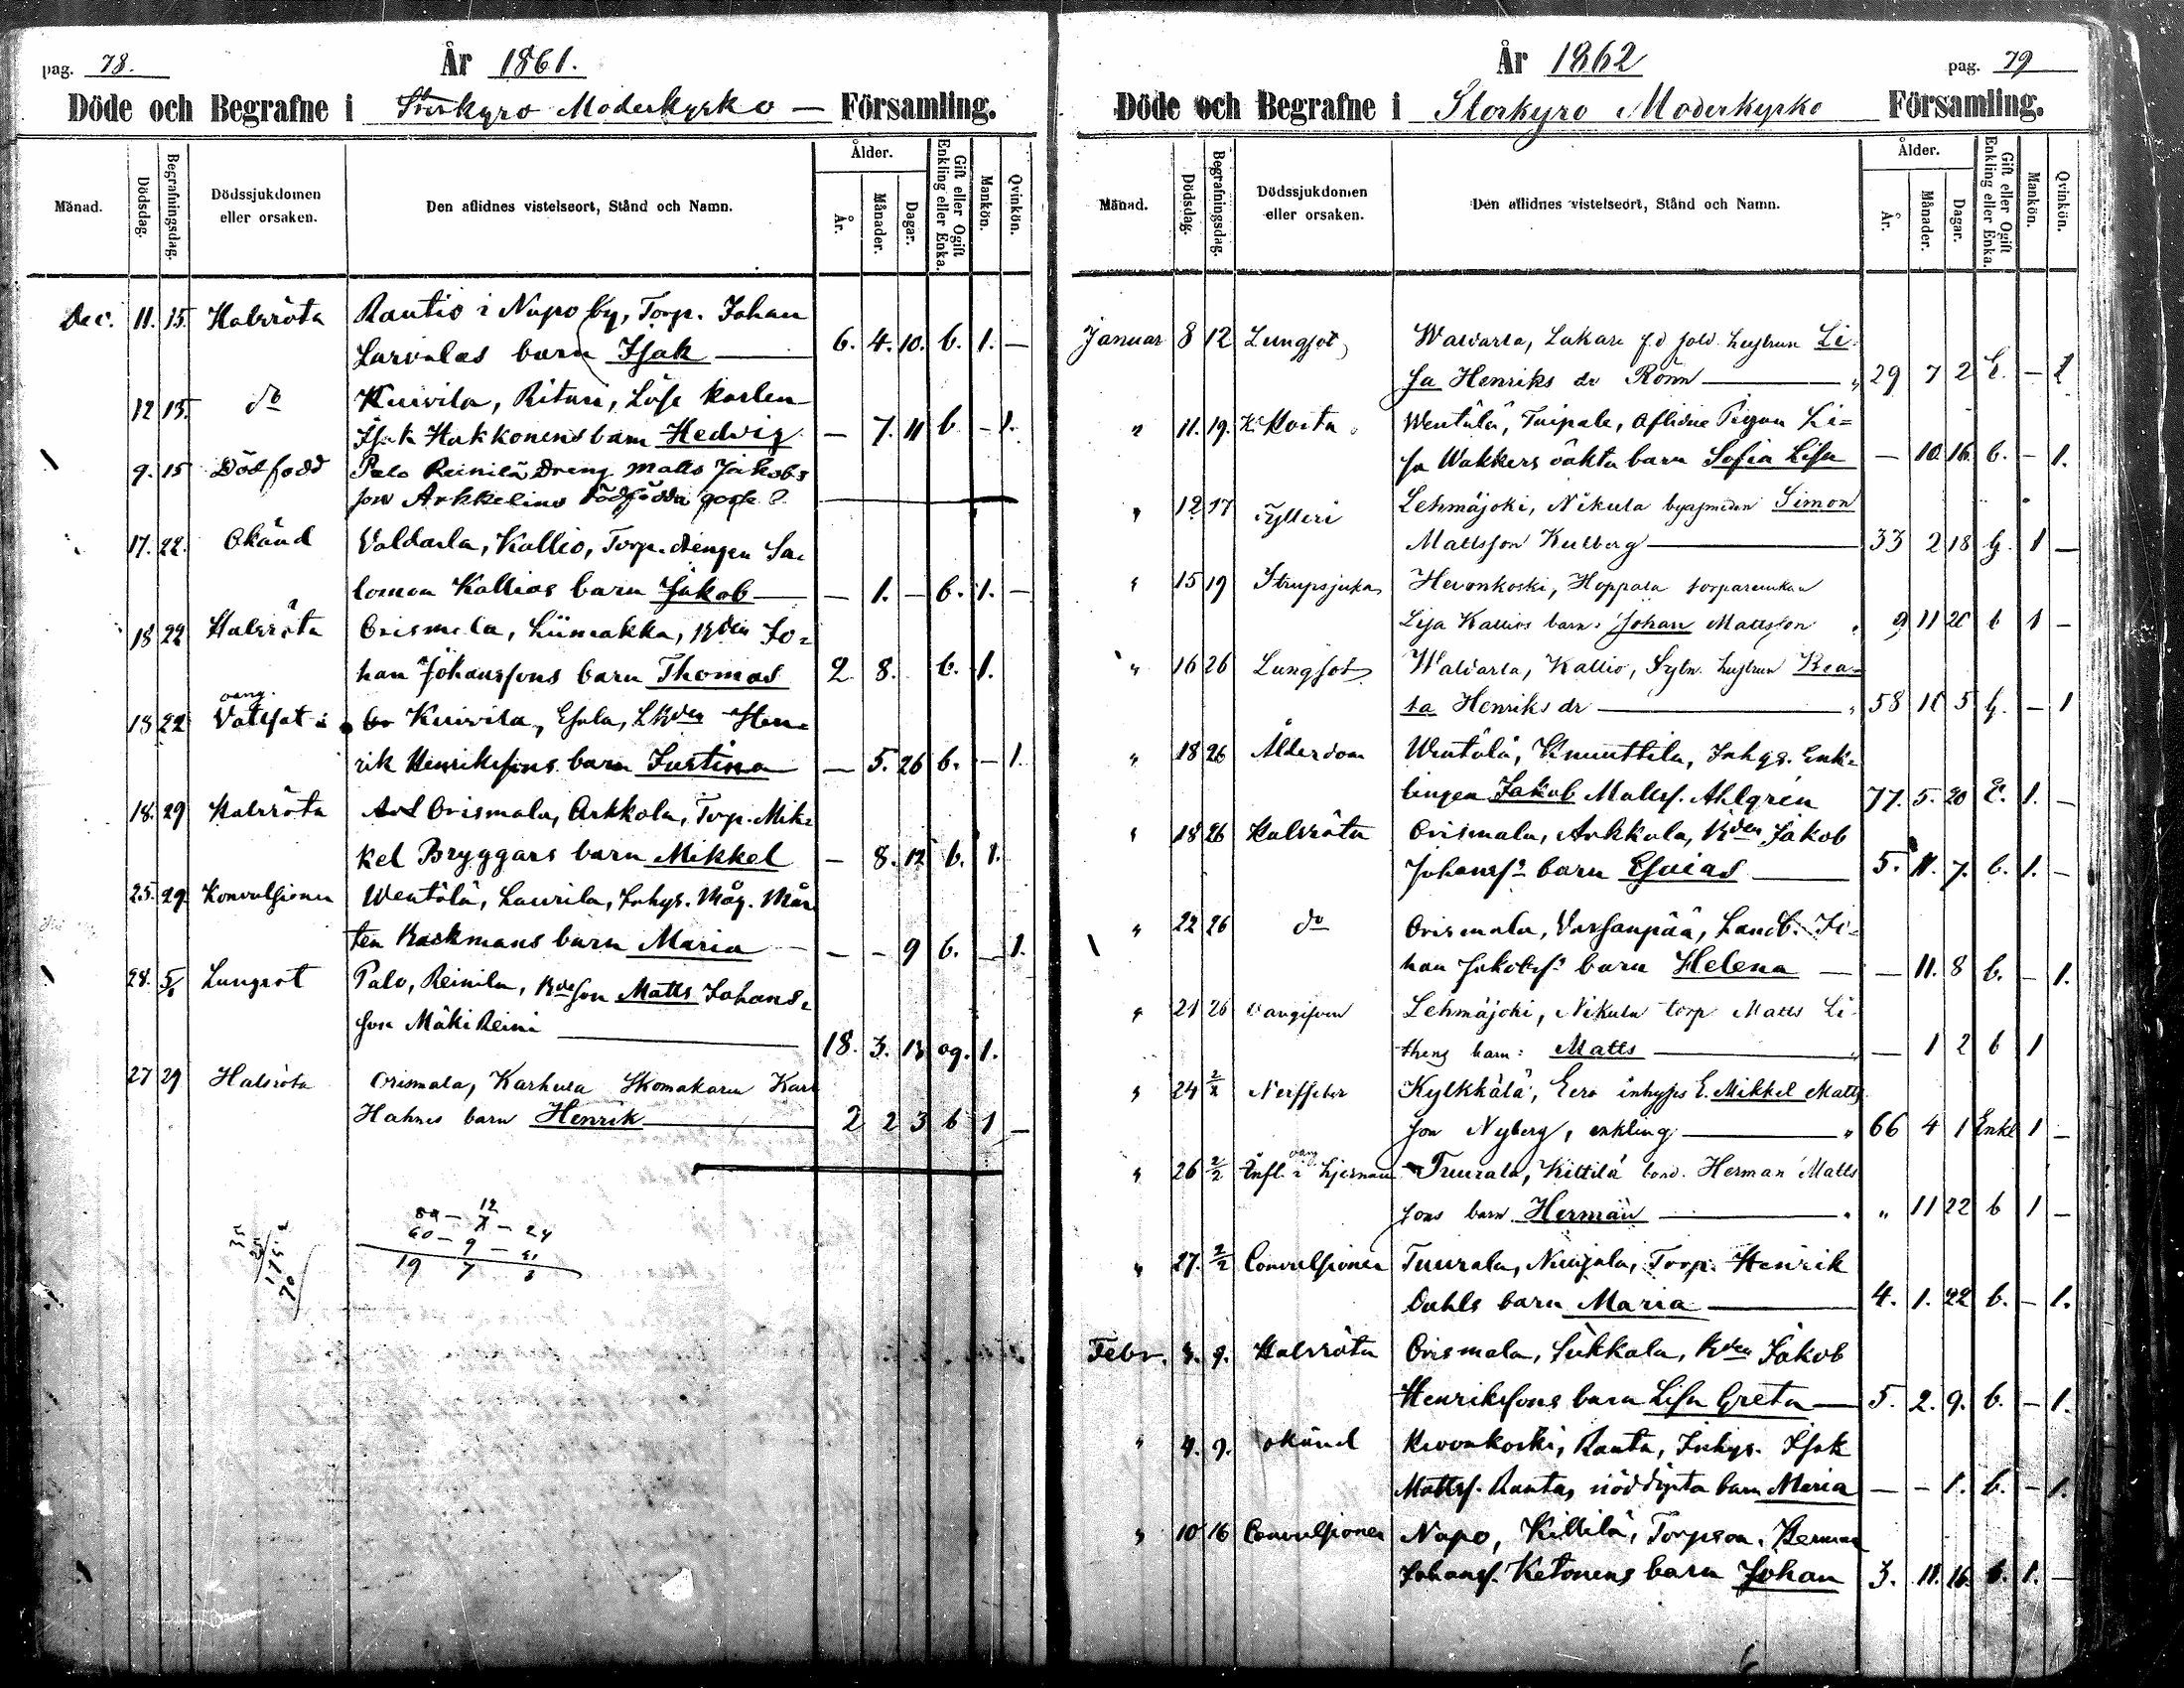 pag. 78.
År 1861.
Döde och Begrafne i Storkyro Moderkyrko — Församling.
Månad.
Dödsdag.
Begrafningsdag.
Dödssjukdomen
eller orsaken.
Den aflidnes vistelseort, Stånd och Namn.
Ålder.
År.
Månader.
Dagar.
Gift eller Ogift
Enkling eller Enka.
Mankön.
Qvinkön.
Dec. 11. 15. Halsröta Rautio i Napo by, Torp. Johan
Larvalas barn Isak — 6. 4. 10. b. 1. —
12 15. do Kuivila, Rituri, Löse karlen
Isak Hakkonens barn Hedvig — 7. 11 b — 1.
9. 15 Dödfödd Palo Reinilä Dreng Matts Jakobs
son Arkkelins dödfödda gosse
17. 22. Okänd Valdarla, Kallio, Torp. drengen Sa-
lomon Kallios barn Jakob — — 1. — b. 1. —
18 22 Halsröta Orismala, Liimakka, Bden Jo-
han Johanssons barn Thomas 2 8. b. 1.
18 22 Vattsot i Kuivila, Esala, Hen-
rik Henrikssons barn Justina — 5. 26 b. — 1.
18. 29 Halsröta Orismala, Arkkola, Torp. Mik-
kel Bryggars barn Mikkel — 8. 12 b. 1.
25. 29. Konvulsioner Wentälä, Laurila, Inhys. Måg. Mår
ten Backmans barn Maria — — — 9 b. — 1.
28. 5/1 Lungsot Palo, Reinila, Bdeson Matts Johans-
son Mäki Reini — 18. 3. 13 og. 1.
27 29 Halsröta Orismala, Karhula Skomakaren Karl
Hahnes barn Henrik — 2 2 3 b 1 —
12
60 — 9
19 7 3
År 1862
pag. 79
Döde och Begrafne i Storkyro Moderkyrko Församling.
Månad.
Dödsdag.
Begrafningsdag.
Dödssjukdomen
eller orsaken.
Den aflidnes vistelseort, Stånd och Namn.
Ålder.
År.
Månader.
Dagar.
Gift eller Ogift
Enkling eller Enka.
Mankön.
Qvinkön.
Januar 8 12 Lungsot Waldarla, Lakari f.d sold. hustrun Li-
sa Henriks dr Rönn — " 29 7 2 — 1
" 11. 19. Hosta Wentälä, Taipale, Aflidne Pigan Li=
sa Wakkers oäkta barn Sofia Lisa — 10. 16. b. — 1.
" 12 17 Fylleri Lehmäjoki, Nikula bysmeden Simon
Mattsson Kulberg — 33 2 18 g. 1 —
" 15 19 Strupsjuka Hevonkoski, Hoppala torparenkan
Lisa Kallios barn: Johan Mattsson " 9 11 20 b 1 —
" 16 26 Lungsot Waldarla, Kallio, Sytn. hustrun Bea-
ta Henriks dr — " 58 11 5 g. — 1
" 18 26 Ålderdom Wentälä, Knuuttila, Inhys. Enk-
lingen Jakob Mattss. Ahlgrén 77. 5. 20 E. 1. —
" 18 26 Halsröta Orismala, Arkkola, Bden Jakob
Johanss barn Esaias — 5. 11. 7. b. 1. —
" 22 26 do Orismala, Varsanpää, Landb. Jo-
han Jakobss barn Helena — — 11. 8 b. — 1.
" 21 26 Lehmäjoki, Nikula torp Matts Li-
thens barn: Matts — " — 1 2 b 1
" 24 2/2 Nerffeber Kylkkälä, Eero inhyses E. Mikkel Matts
son Nyberg, enkling — " 66 4 1 Enkl 1 —
" 26 2/2 Infl. i hjernan Tuurala, Kittilä bond. Herman Matts
sons barn Herman — " " 11 22 b 1 —
" 27. 2/2 Convulsioner Tuurala, Nuijala, Torp. Henrik
Dahls barn Maria — 4. 1. 22 b. — 1.
Febr. 3. 9. Halsröta Orismala, Sukkala, Bden Jakob
Henrikssons barn Lisa Greta — 5. 2. 9. b. — 1.
" 4. 9. okänd Hevonkoski, Ranta, Inhys. Isak
Mattss. Rantas nöddöpta barn Maria — — 1. b. — 1.
" 10 16 Convulsioner Napo, Kittilä, Torpson. Herman
Johanss. Ketonens barn Johan 3. 11. 16. b. 1. —